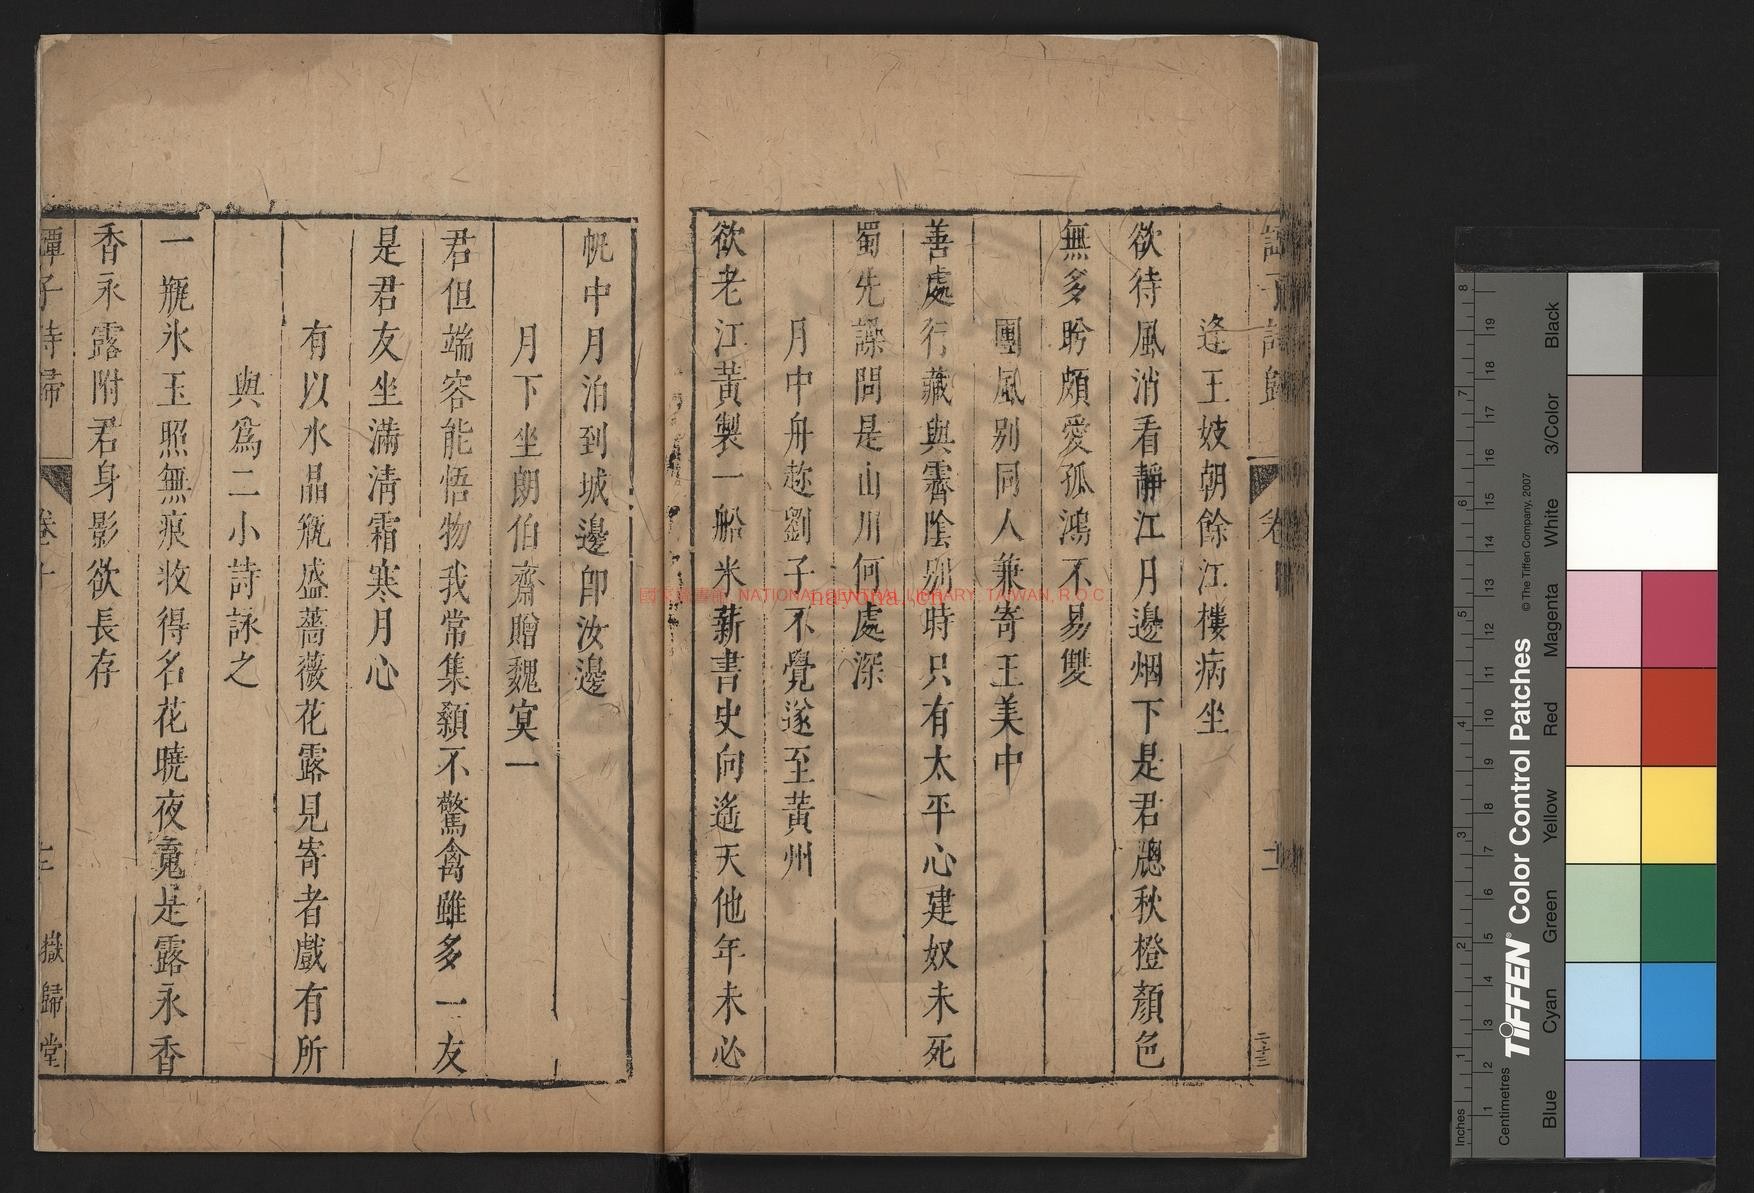 逢王妓朝餘江樓病坐
欲待風消看靜江月邊烟下是君牕秋橙顏色
無多盻頗愛孤鴻不易雙
團風別同人兼寄王美中
善處行藏與霽陰別時只有太平心建奴未死
蜀先譟問是山川何處深
月中舟趂劉子不覺遂至黃州
欲老江黃製一船米薪書史向遙天他年未必
帆中月泊到城邊卽汝邊
月下坐朗伯齋贈魏㝠一
君但端容能悟物我常集纇不驚禽雖多一友
是君友坐滿清霜寒月心
有以水晶瓶盛薔薇花露見寄者戲有所
與爲二小詩詠之
一瓶氷玉照無痕收得名花曉夜䰟是露永香
香永露附君身影欲長存
譚子詩歸
卷十
嶽歸堂
國家圖書館 NATIONAL CENTRAL LIBRARY, TAIWAN, R.O.C
nayona.cn
Inches
Centimetres
TIFFEN Color Control Patches
© The Tiffen Company, 2007
Blue
Cyan
Green
Yellow
Red
Magenta
White
3/Color
Black